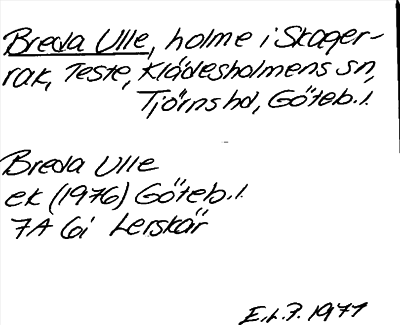 Breda Ulle, holme i Skager-
rak, Teste, Klädesholmens sn,
Tjörns hd, Göteb.l.
Breda Ulle
ek (1976) Göteb.l.
7A 6i Lerskär
E.L.P. 1977